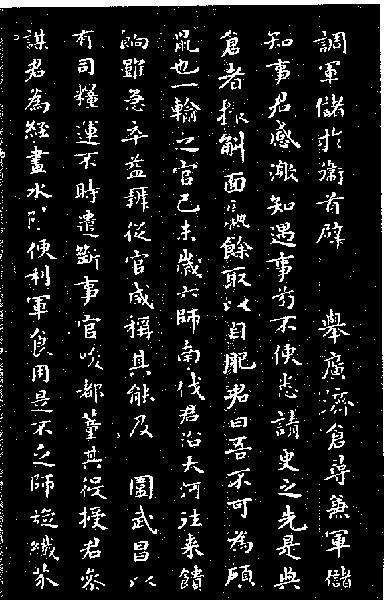 調軍儲於衛首辟 舉廣濟倉尋兼軍儲
知事君感激知遇事有不便悉請更之先是典
倉者斛面羸餘取以自肥君曰吾不可為碩
鼠也一輸之官己未歲六師南伐君沿大河往來饋
餉雖急卒益辦從官咸稱其能及 圍武昌以
有司糧運不時遣斷事官唆都董其役授君參
謀君為經畫水陸便利軍食用是不乏師旋纖芥